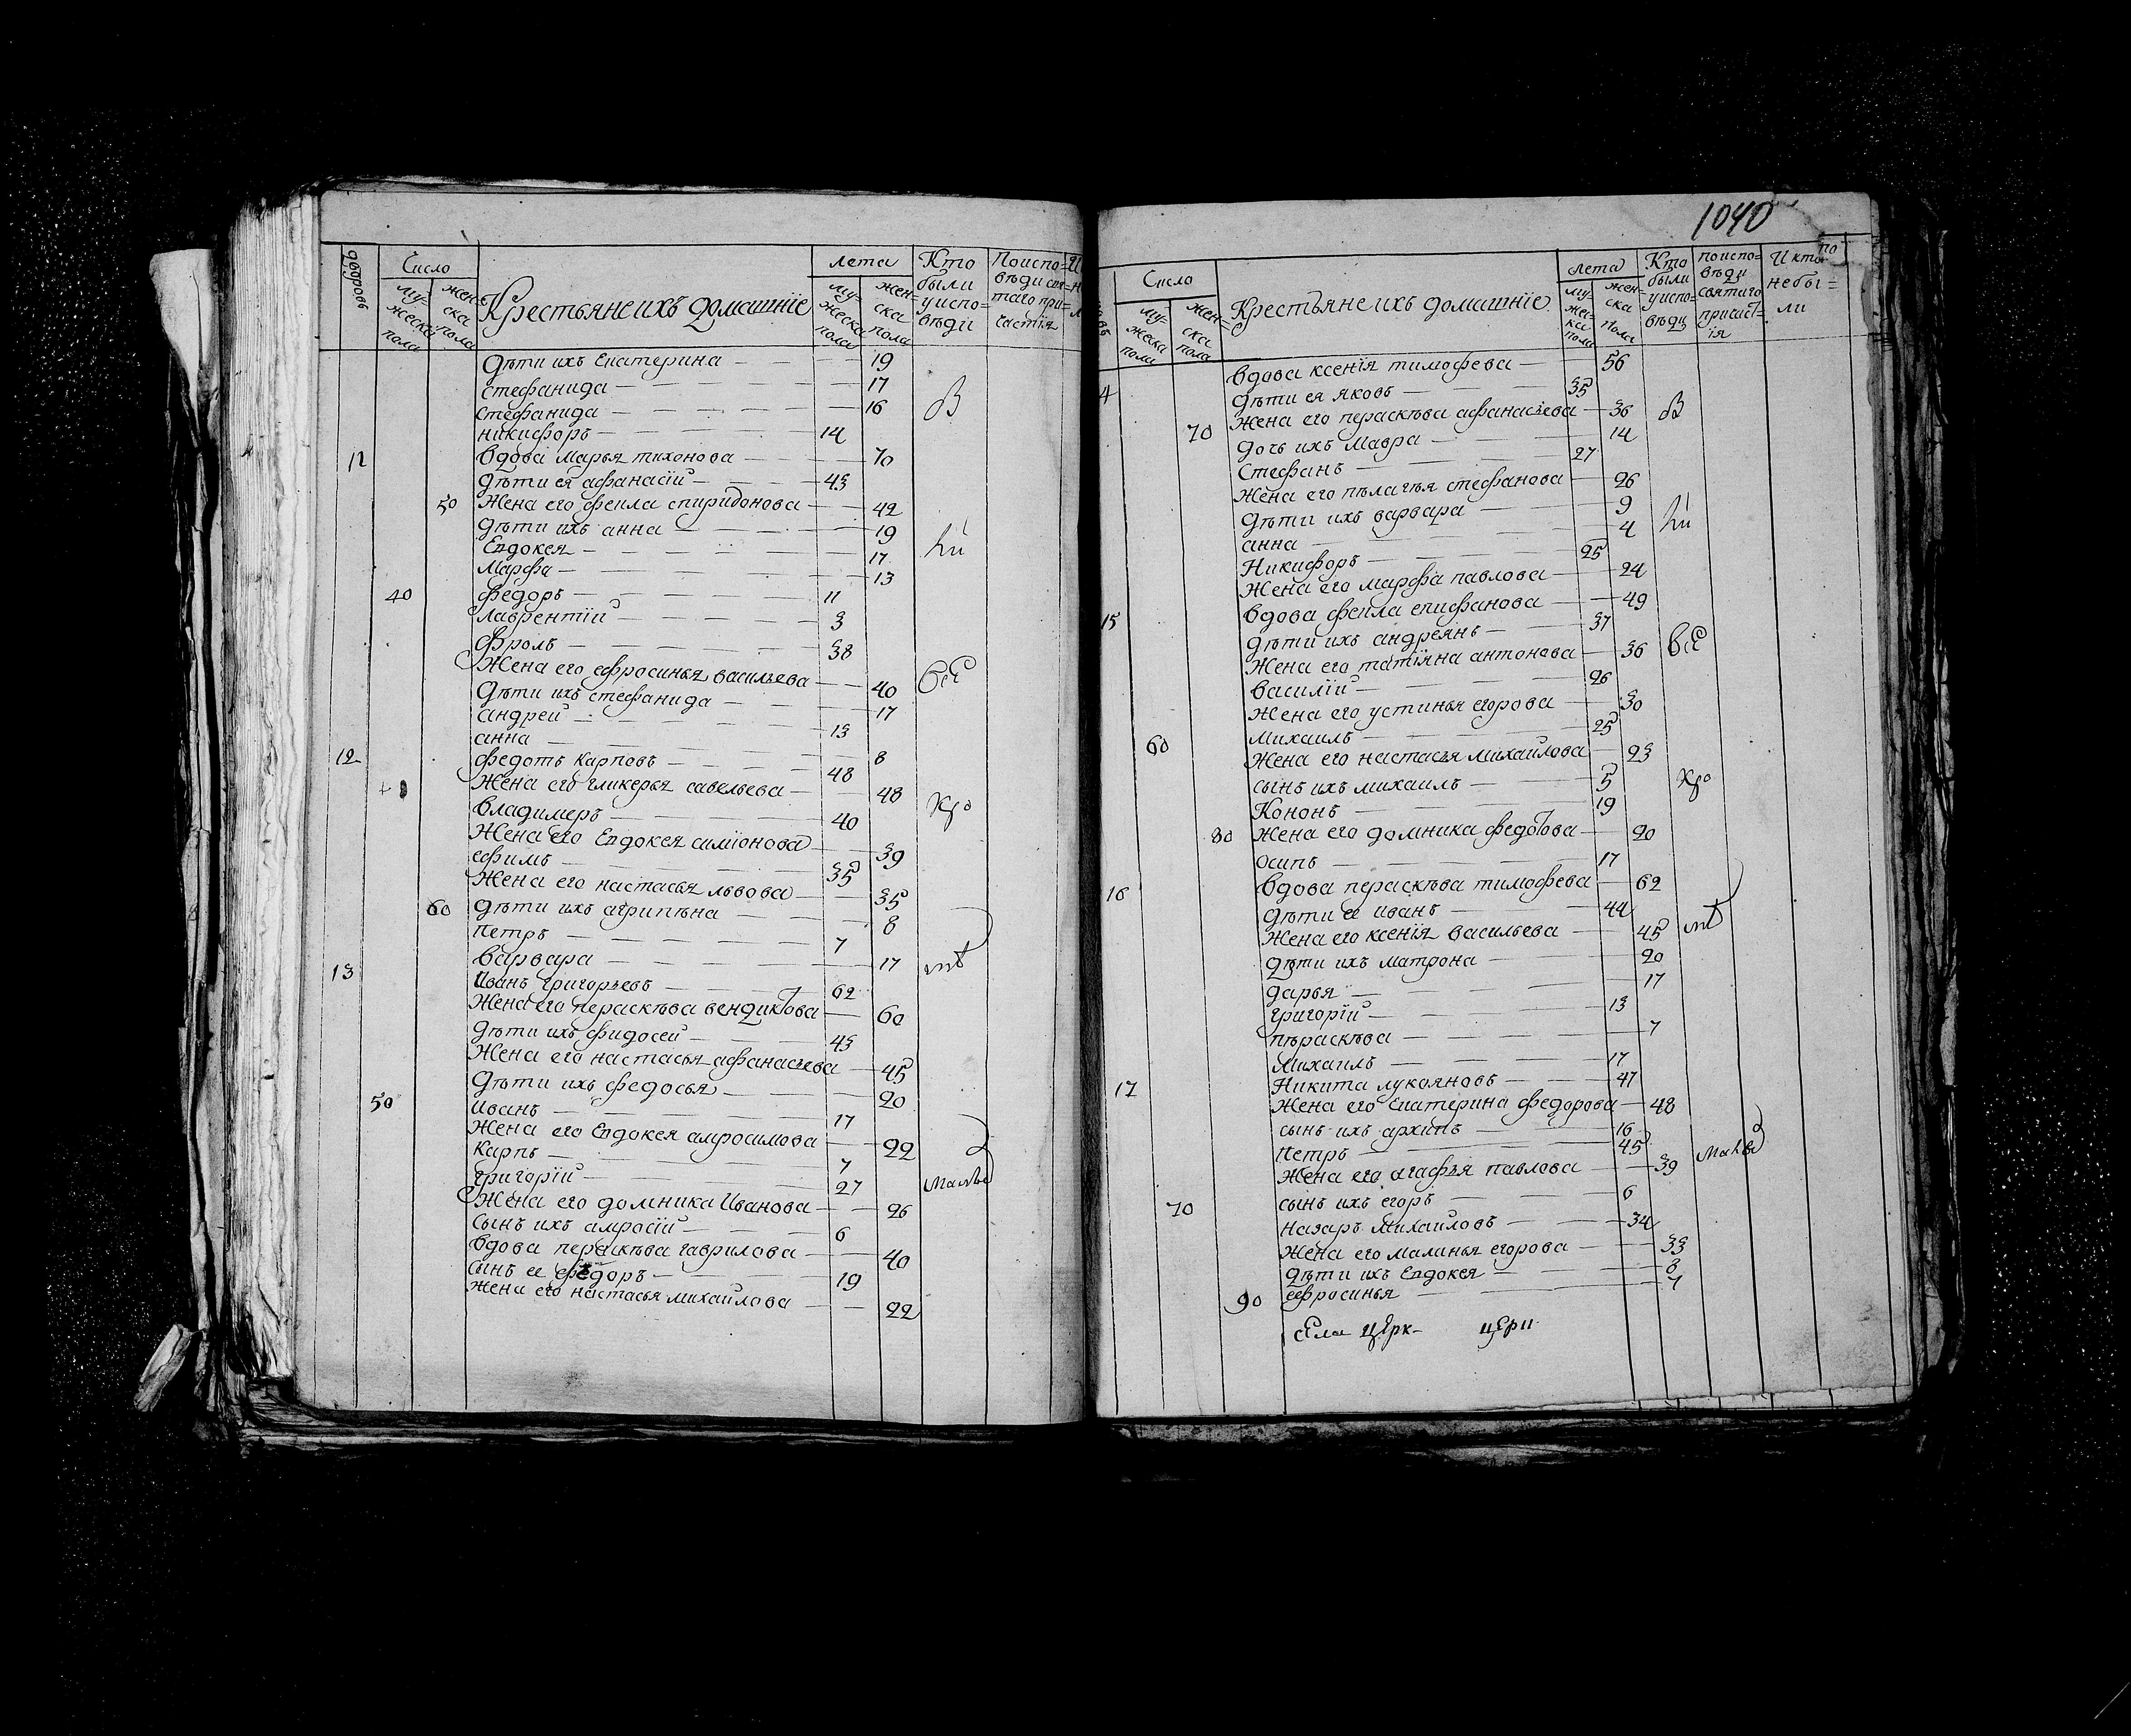 1040
дворовъ Число Крестьяне ихъ домашніе лета Кто были у испо=вѣди
Поиспо=вѣди свя=таго при=частія
му=жеска пола жен=ска пола му=жеска пола жен=ска пола
дѣти ихъ Екатерина 19
стефанида 17
стефанида 16
никифоръ 14
12 вдова Марья тихонова 70
дѣти ея афанасіи 43
50 Жена его фекла спиридонова 42
дѣти ихъ анна 19
Евдокея 17
Марфа 13
40 федоръ 11
лаврентіи 3
фролъ 38
Жена его ефросинья васильева 40
дѣти ихъ стефанида 17
андреи 13
анна 8
12 федотъ карповъ 48
Жена его гликерья савельева 48
владимеръ 40
Жена его Евдокея симіонова 39
ефимъ 35
Жена его настасья львова 35
60 дѣти ихъ агрипѣна 8
петръ 7
варвара 17
13 Иванъ григорьевъ 62
Жена его пераскѣва вендиктова 60
дѣти ихъ фидосеи 43
Жена его настасья афанасьева 45
дѣти ихъ федосья 20
50 иванъ 17
Жена его Евдокея амросимова 22
карпъ 7
григоріи 27
Жена его домника Иванова 26
сынъ ихъ амросіи 6
вдова пераскѣва гаврилова 40
сынъ ее федоръ 19
Жена его настасья михаилова 22
Число Крестьяне ихъ домашніе лета Кто были у испо=вѣди
поиспо=вѣди святаго причаст=ія И кто небы=ли
му=жеска пола жен=ска пола му=жеска пола жен=ска пола
вдова ксенія тимофева 56
4 дѣти ея яковъ 35
Жена его пераскѣва афанасьева 36
70 дочь ихъ мавра 14
Стефанъ 27
Жена его пѣлагѣя стефанова 26
дѣти ихъ варвара 9
анна 4
Никифоръ 25
Жена его марфа павлова 24
15 вдова фекла епифанова 49
дѣти ихъ андреянъ 37
Жена его татіяна антонова 36
василіи 26
Жена его устинья егорова 30
михаилъ 25
60 Жена его настасья михаилова 23
сынъ ихъ михаилъ 5
Кононъ 19
80 Жена его домника федотова 20
осипъ 17
16 вдова пераскѣва тимофева 62
дѣти ее иванъ 44
Жена его ксенія васильева 45
дѣти ихъ матрона 20
дарья 17
григоріи 13
пѣраскѣва 7
михаилъ 17
17 Никита лукояновъ 47
Жена его Екатерина федорова 48
сынъ ихъ архипъ 16
Петръ 45
Жена его агафья павлова 39
70 сынъ ихъ егоръ 6
назаръ михаиловъ 34
Жена его малинья егорова 33
дѣти ихъ Евдокея 8
90 ефросинья